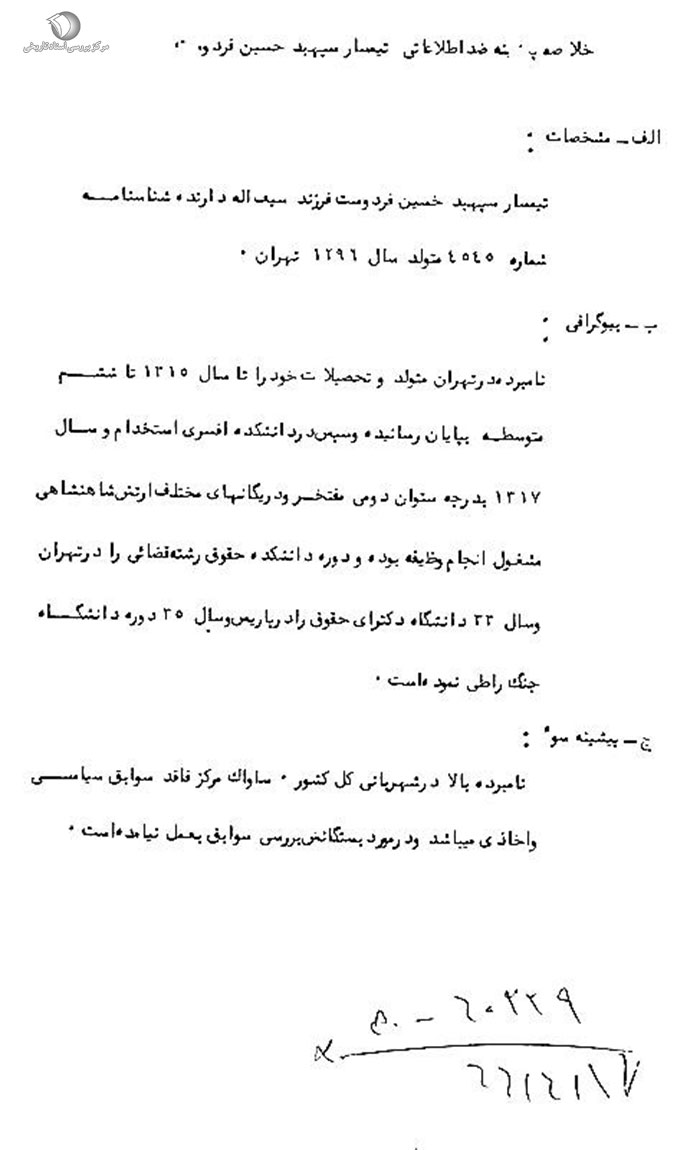 مرکز بررسی اسناد تاریخی
خلاصه پ بنه ضد اطلاعاتی تیمسار سپهبد حسین فردو
الف ــ مشخصات :
تیمسار سپهبد حسین فردوست فرزند سیف اله دارنده شناسنامــه
شماره ٤٥٤٥ متولد سال ۱۲۹٦ تهران ٠
ب ــ بیوگرافی :
نامبرده درتهران متولد و تحصیلات خود را تا سال ۱۳۱٥ تا ششــم
متوسطــه بپایان رسانیده وسپس دردانشکده افسری استخدام و ســال
۱۳۱۷ بدرجه ستوان دومی مفتخــر ودریگانهای مختلف ارتش شاهنشاهی
مشغول انجام وظیفه بوده و دوره دانشکده حقوق رشته قضائی را درتهران
وسال ۳۳ دانشگاه دکترای حقوق رادرپاریس وسال ۳٥ دوره دانشگــاه
جنگ راطی نموده است ٠
ج ــ پیشینه سوء :
نامبرده بالا درشهربانی کل کشور ٠ ساواک مرکز فاقد سوابق سیاســی
واخاذی میباشد ودرمورد بستگانش بررسی سوابق بعمل نیامده است ٠